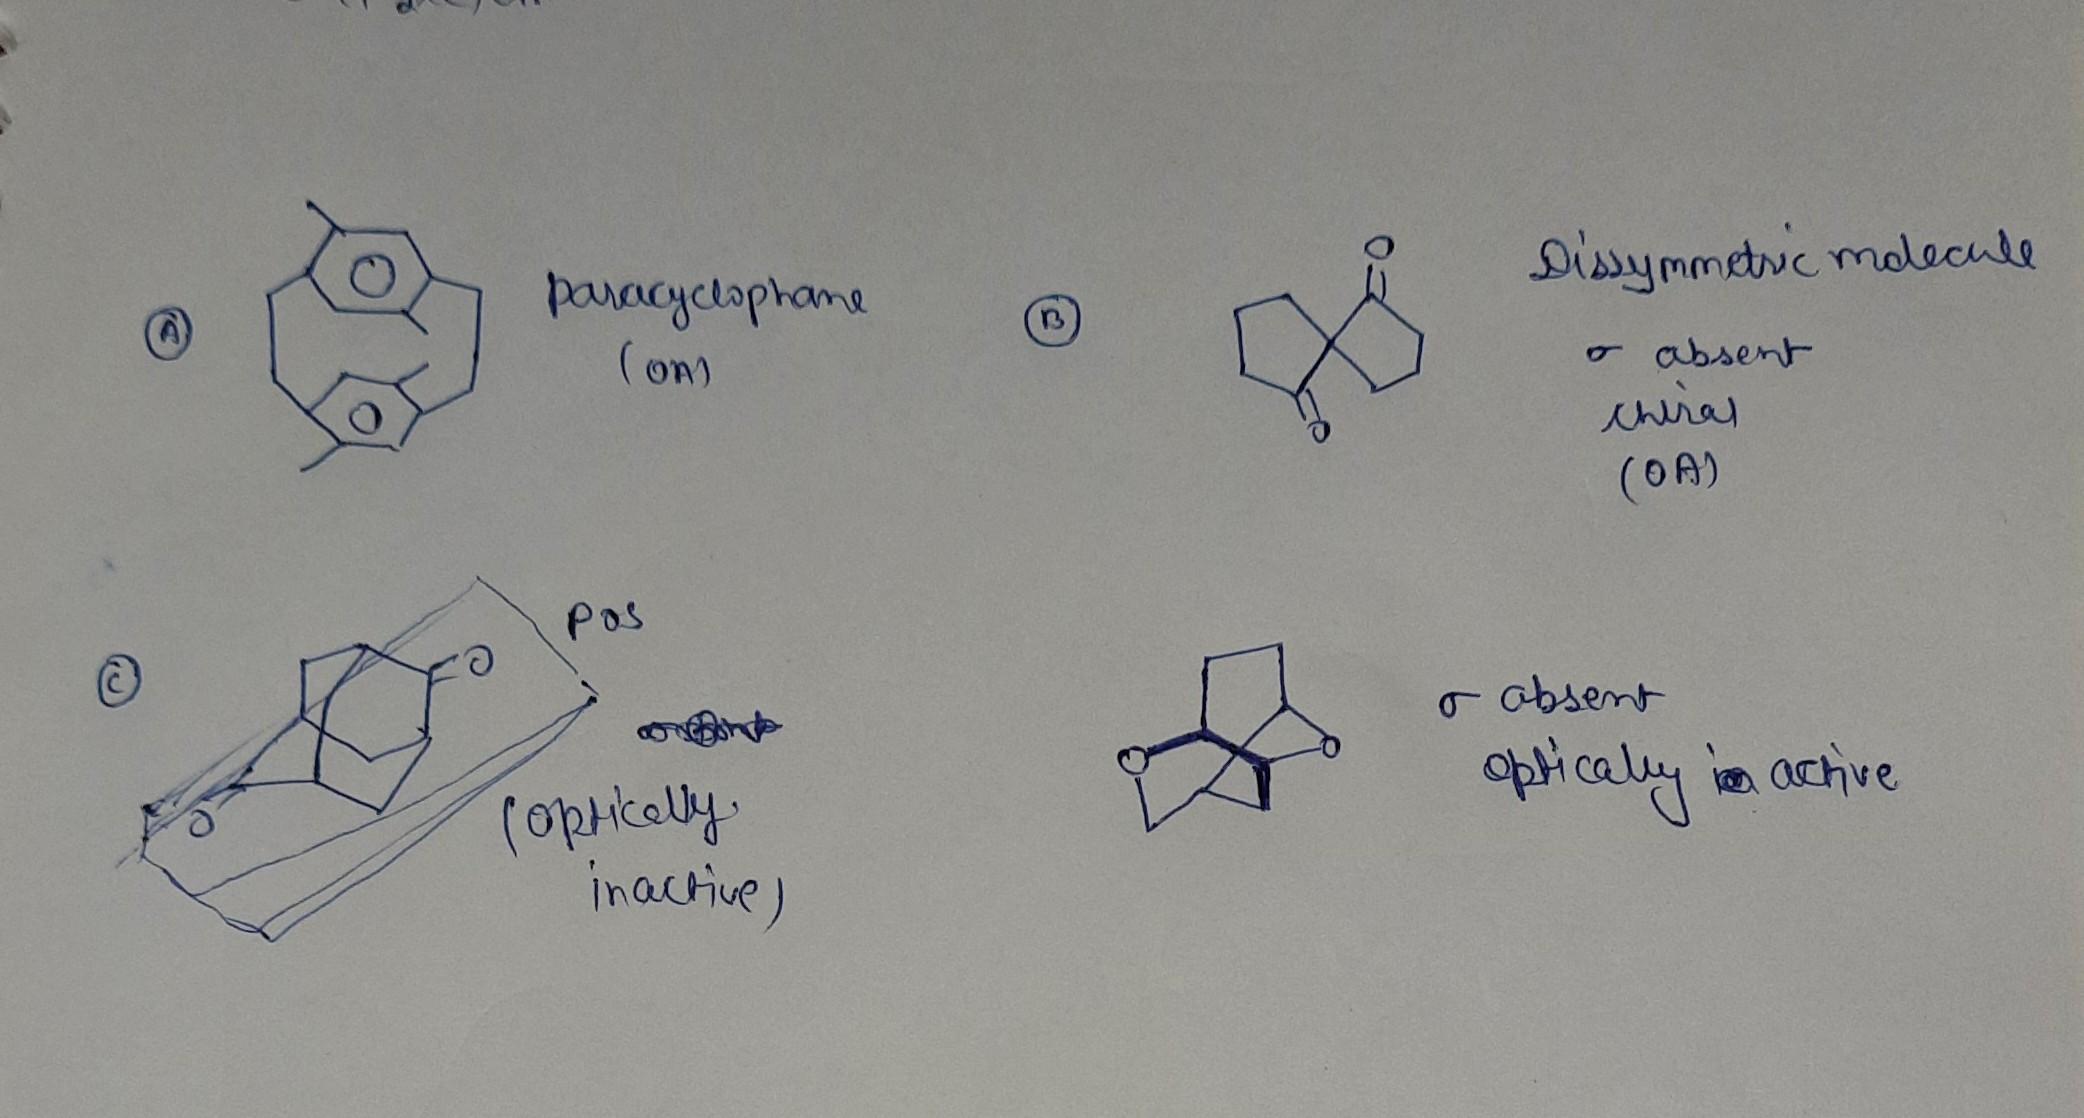 A
paracyclophane
(OA)
B
O
O
Dissymmetric molecule
σ absent
chiral
(OA)
C
O
O
POS
(optically
inactive)
O
O
σ absent
optically active